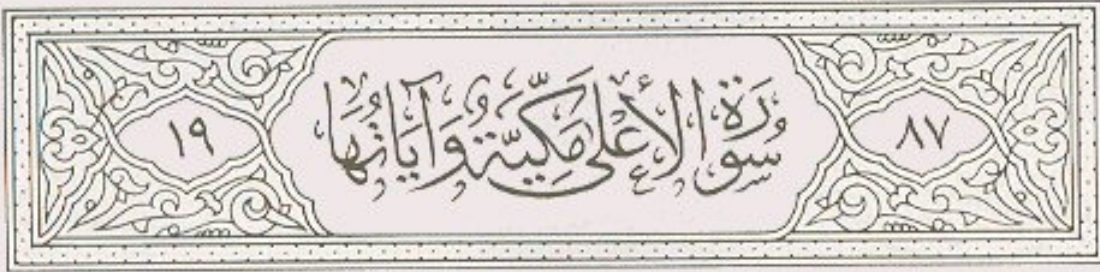 ٨٧ سُورَةُ الأَعْلَى مَكِّيَّةٌ وَآيَاتُهَا ١٩